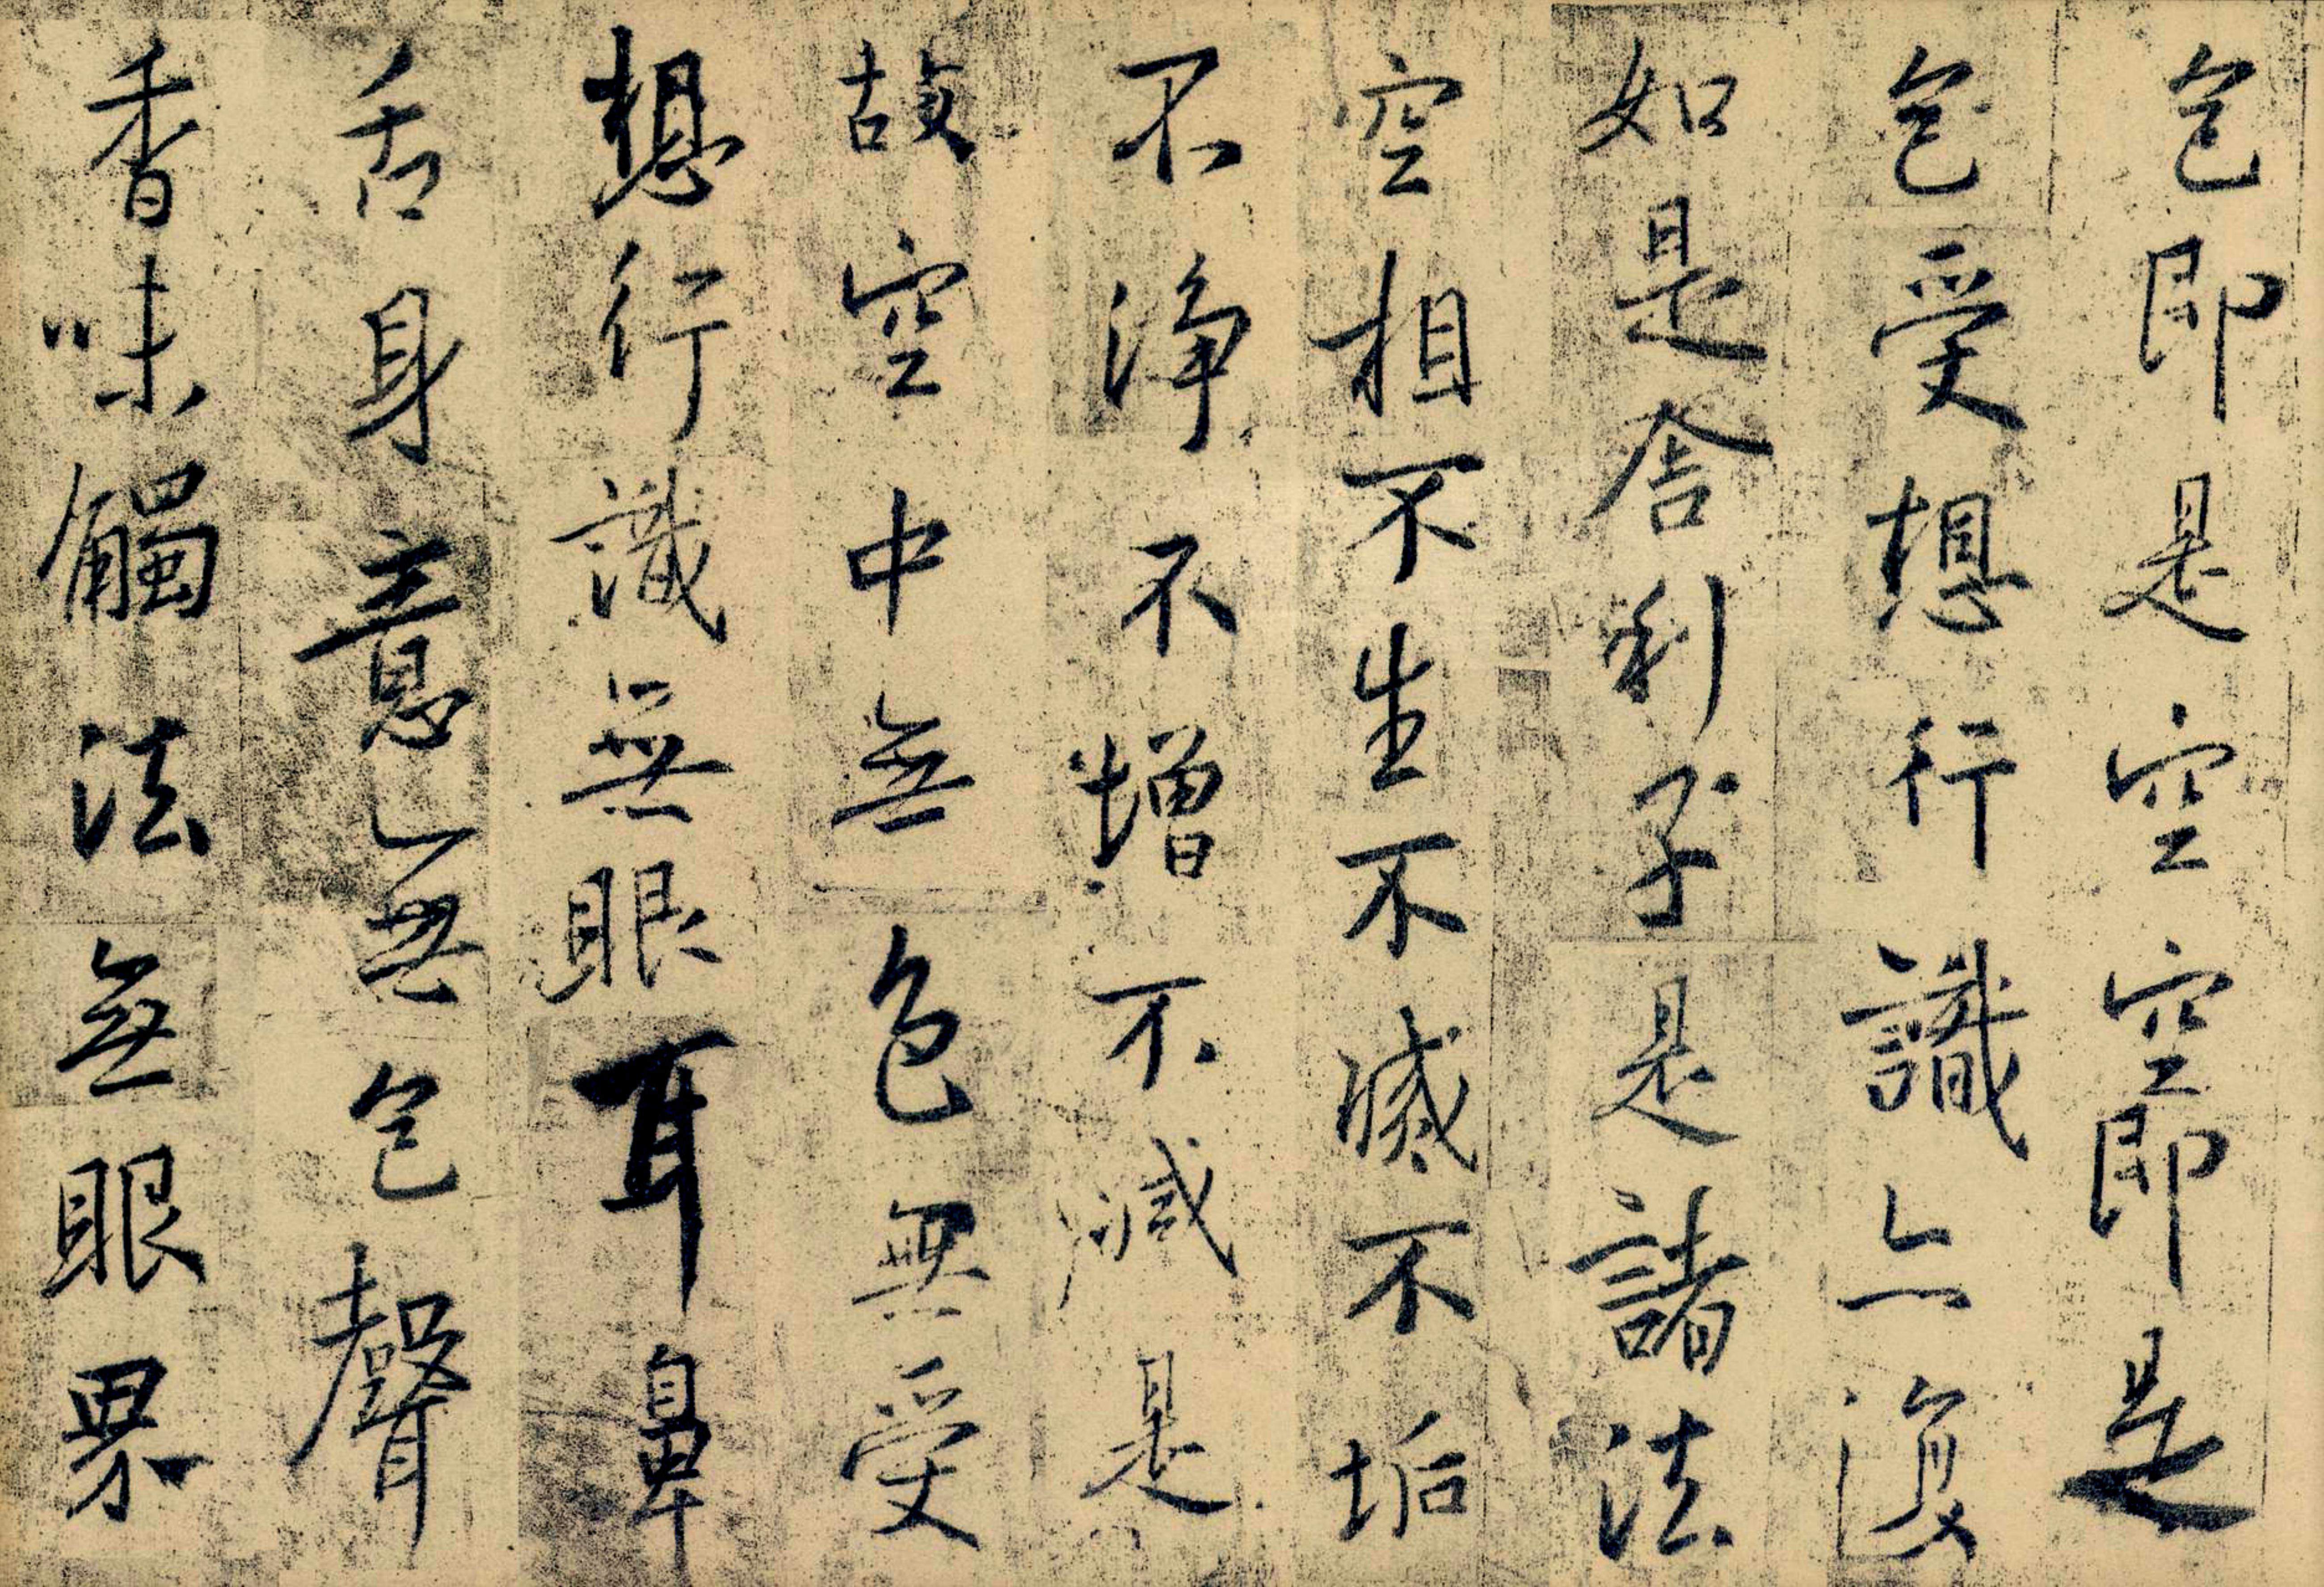 色即是空空即是
色受想行識亦復
如是舍利子是諸法
空相不生不滅不垢
不淨不增不減是
故空中無色無受
想行識無眼耳鼻
舌身意無色聲
香味觸法無眼界